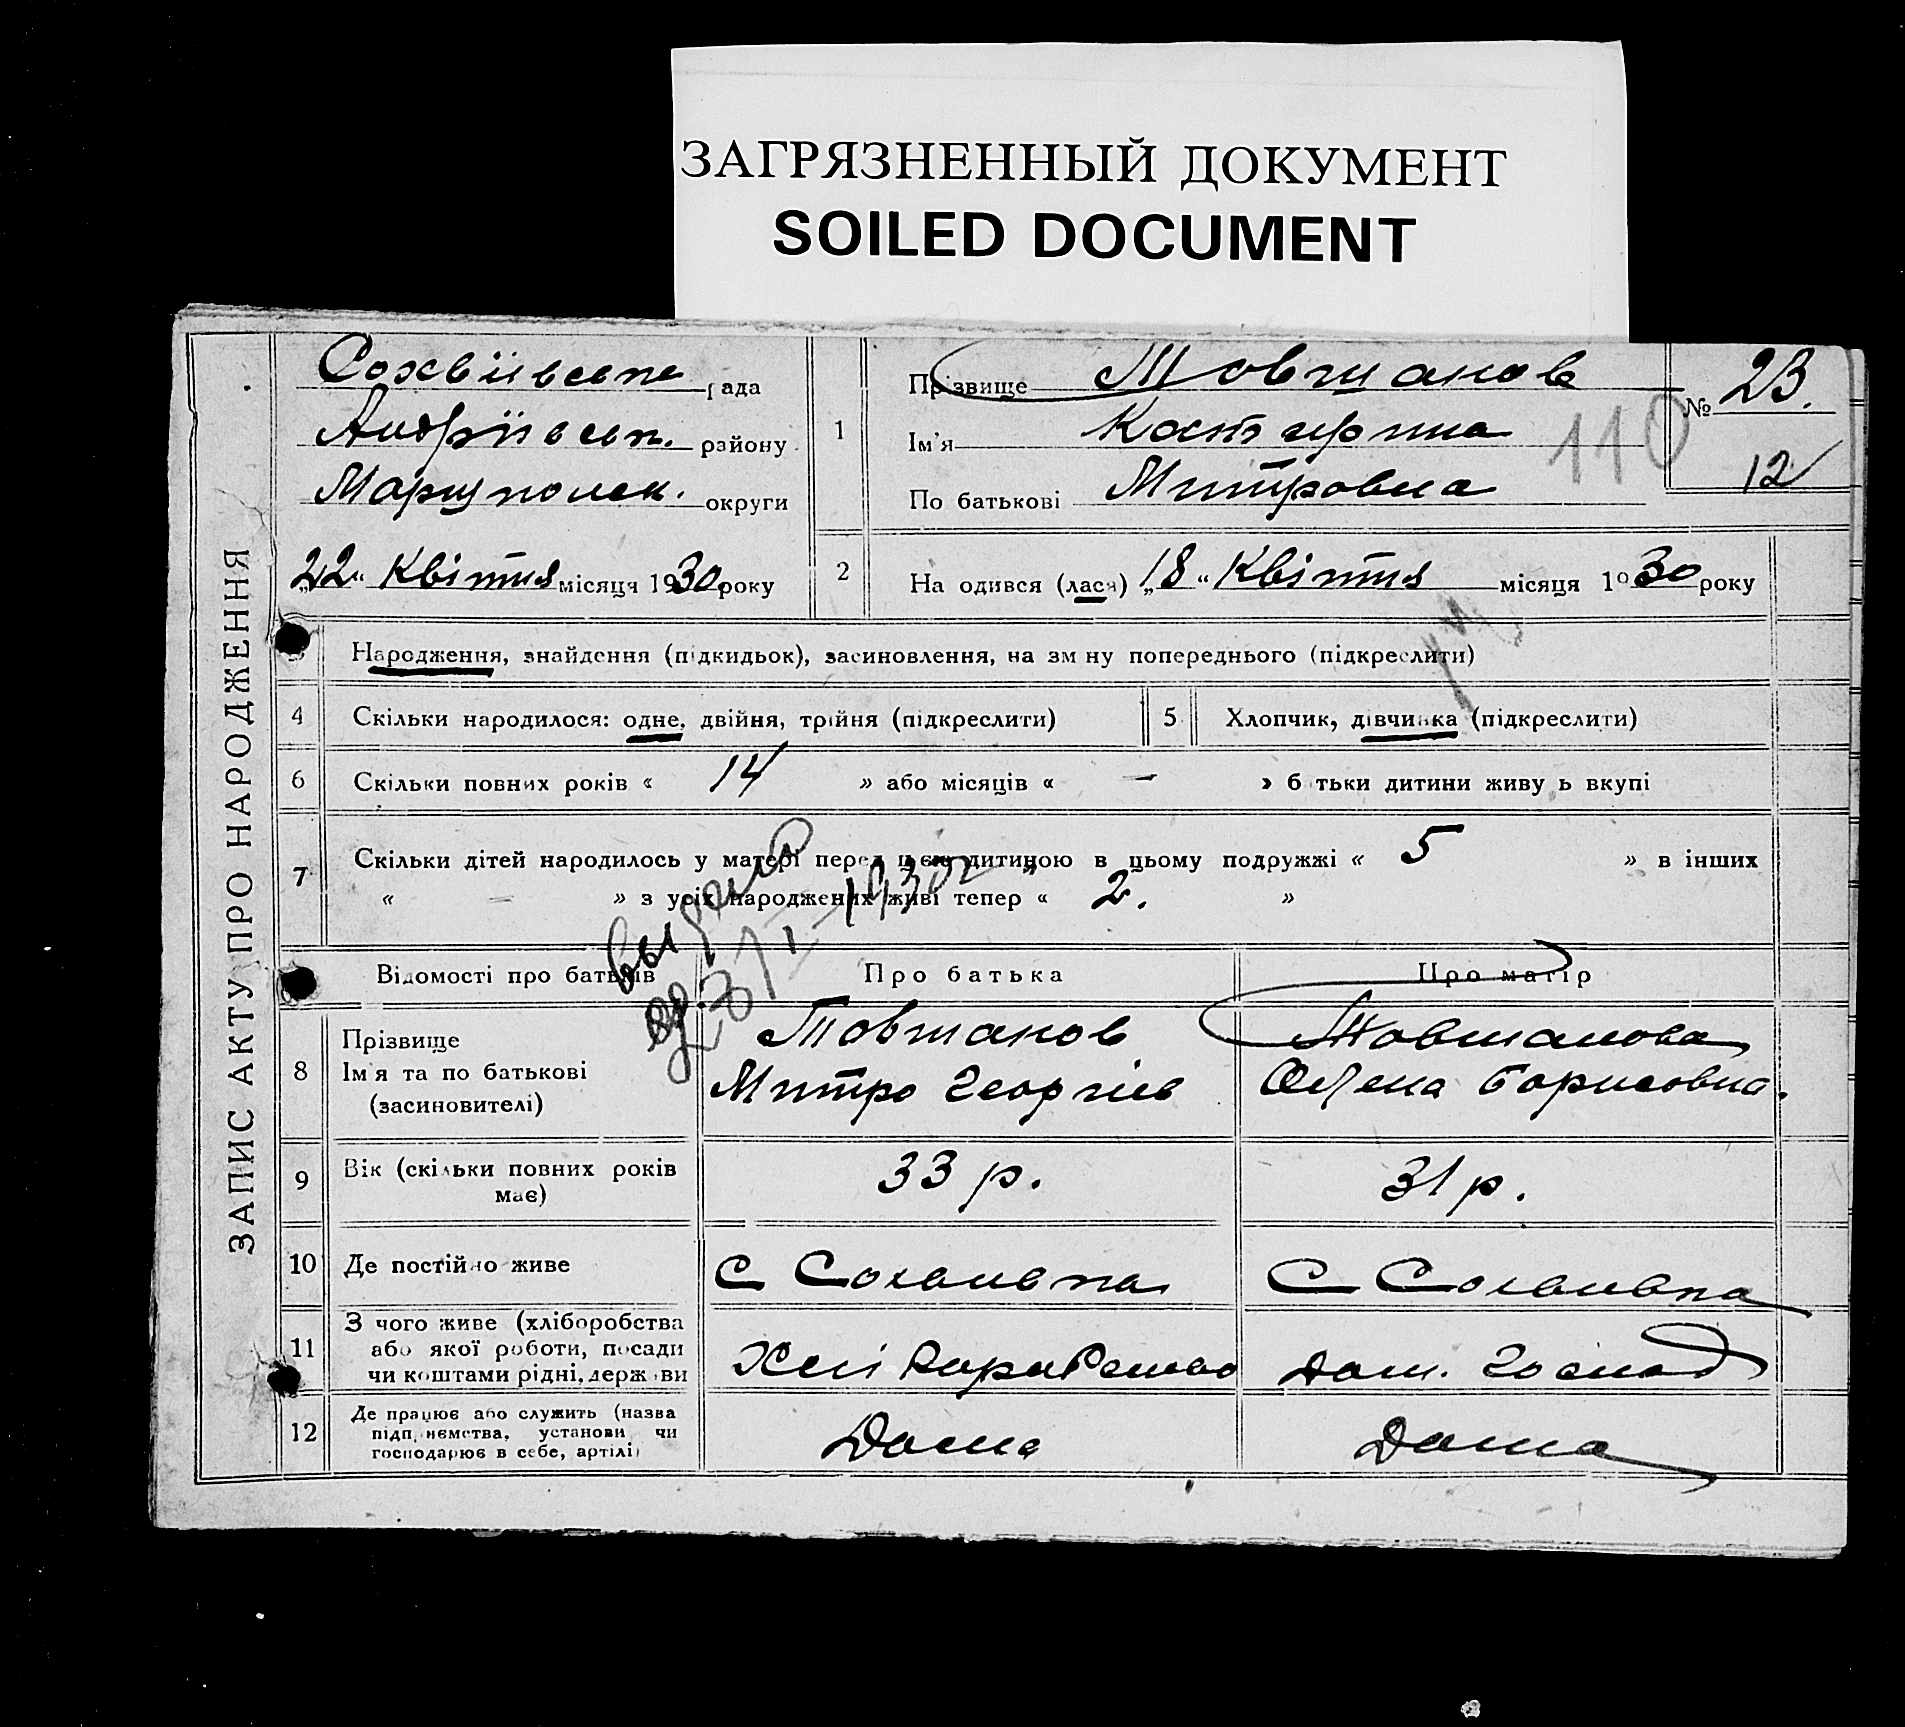 ЗАГРЯЗНЕННЫЙ ДОКУМЕНТ
SOILED DOCUMENT
ЗАПИС АКТУ ПРО НАРОДЖЕННЯ
рада
Андріївськ. району
Маріупольск. округи
„22“ Квітня місяця 1930 року
1
Прізвище Товшанова
Ім'я Костирина
По батькові Митровна
№ 23.
110
12
2
На одився (лася) „18“ Квітня місяця 1930 року
Народження, знайдення (підкидьок), засиновлення, на зм ну попереднього (підкреслити)
4 Скільки народилося: одне, двійня, трійня (підкреслити)
5 Хлопчик, дівчинка (підкреслити)
6 Скільки повних років « 14 » або місяців « — » б тьки дитини живу ь вкупі
7 Скільки дітей народилось у матері перед цією дитиною в цьому подружжі « 5 » в інших
« — » з усіх народжених живі тепер « 2. »
Відомості про батьків
Про батька
Про матір
8 Прізвище
Ім'я та по батькові
(засиновителі)
Товшанов
Митро Георгіев
Товшанова
Олена Борисовна.
9 Вік (скільки повних років
має)
33 р.
31 р.
10 Де постійно живе
С
С
11 З чого живе (хліборобства
або якої роботи, посади
чи коштами рідні, держ ви
Хліборобство
Дом. Господ
12 Де працює або служить (назва
підп. немства, установи чи
господарює в себе, артілі)
Дома
Дома